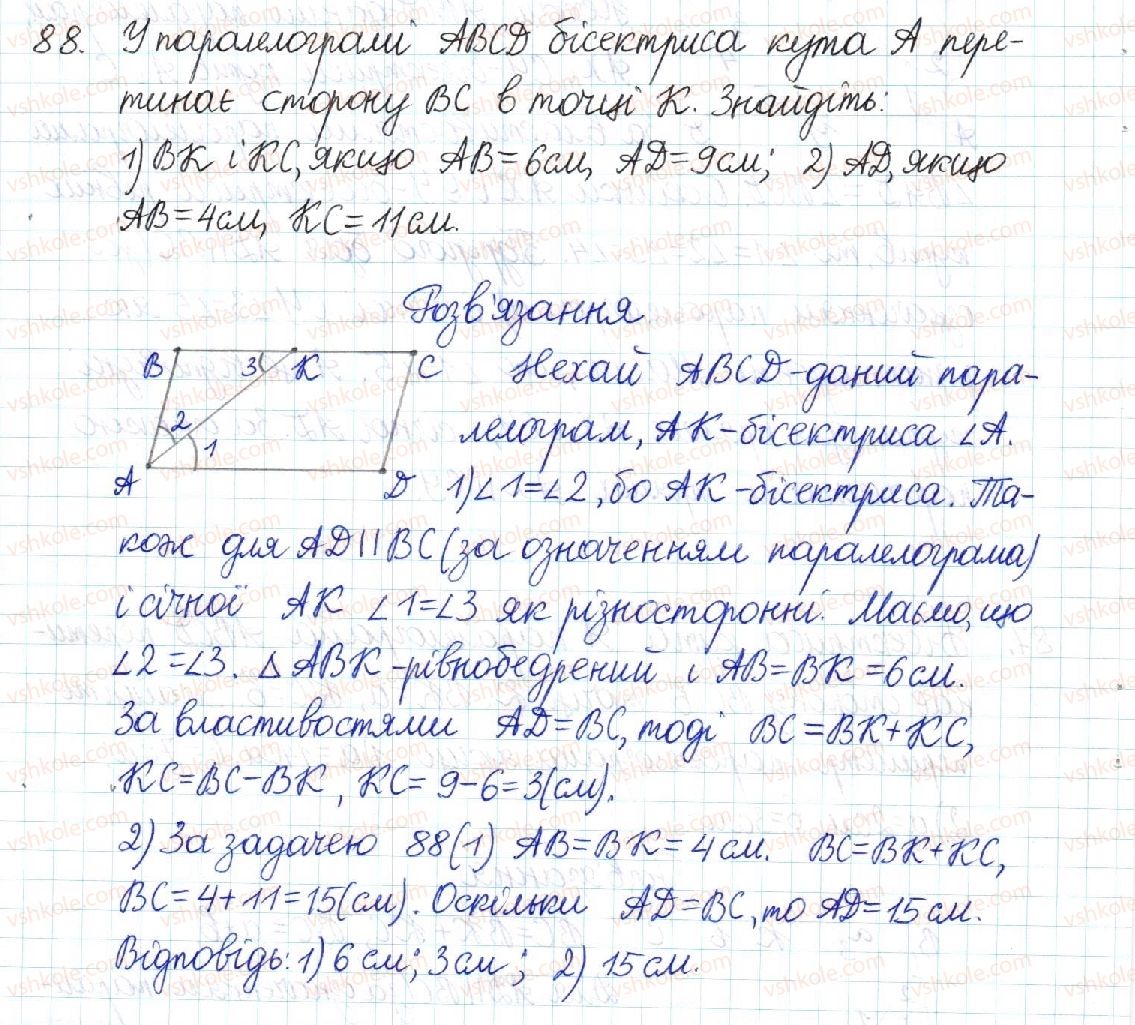 88. У паралелограмі ABCD бісектриса кута A пере-
тинає сторону BC в точці K. Знайдіть:
1) BK і KC, якщо AB = 6см, AD = 9см; 2) AD, якщо
AB = 4см, KC = 11см.
Розв'язання
B 3 K C Нехай ABCD - даний пара-
2 1 лелограм, AK - бісектриса ∠A.
A D 1) ∠1 = ∠2, бо AK - бісектриса. Та-
кож для AD || BC (за означенням паралелограма)
і січної AK ∠1 = ∠3 як різносторонні. Маємо, що
∠2 = ∠3. △ ABK - рівнобедрений і AB = BK = 6см.
За властивостями AD = BC, тоді BC = BK + KC,
KC = BC - BK, KC = 9 - 6 = 3(см).
2) За задачею 88(1) AB = BK = 4см. BC = BK + KC,
BC = 4 + 11 = 15(см). Оскільки AD = BC, то AD = 15см.
Відповідь: 1) 6см; 3см; 2) 15см.
vshkole.com